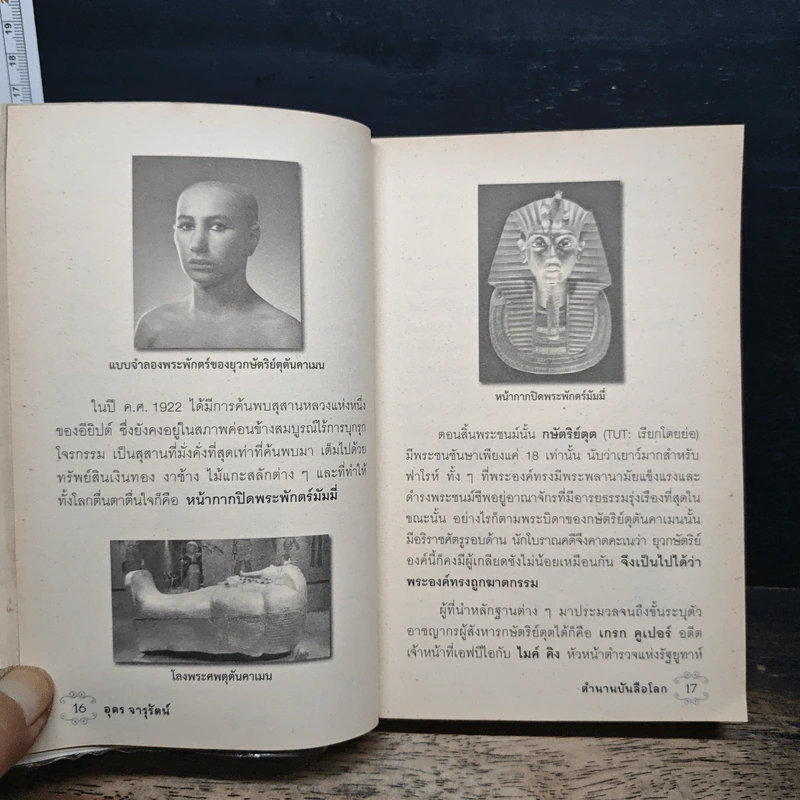 19
18
17
แบบจำลองพระพักตร์ของยุวกษัตริย์ตุตันคาเมน
ในปี ค.ศ. 1922 ได้มีการค้นพบสุสานหลวงแห่งหนึ่ง
ของอียิปต์ ซึ่งยังคงอยู่ในสภาพค่อนข้างสมบูรณ์ไร้การบุกรุก
โจรกรรม เป็นสุสานที่มั่งคั่งที่สุดเท่าที่ค้นพบมา เต็มไปด้วย
ทรัพย์สินเงินทอง งาช้าง ไม้แกะสลักต่าง ๆ และที่ทำให้
ทั้งโลกตื่นตาตื่นใจก็คือ หน้ากากปิดพระพักตร์มัมมี่
โลงพระศพตุตันคาเมน
16 อุดร จารุรัตน์
หน้ากากปิดพระพักตร์มัมมี่
ตอนสิ้นพระชนม์นั้น กษัตริย์ตุต (TUT: เรียกโดยย่อ)
มีพระชนชันษาเพียงแค่ 18 เท่านั้น นับว่าเยาว์มากสำหรับ
ฟาโรห์ ทั้ง ๆ ที่พระองค์ทรงมีพระพลานามัยแข็งแรงและ
ดำรงพระชนม์ชีพอยู่อาณาจักรที่มีอารยธรรมรุ่งเรืองที่สุดใน
ขณะนั้น อย่างไรก็ตามพระบิดาของกษัตริย์ตุตันคาเมนนั้น
มีอริราชศัตรูรอบด้าน นักโบราณคดีจึงคาดคะเนว่า ยุวกษัตริย์
องค์นี้ก็คงมีผู้เกลียดชังไม่น้อยเหมือนกัน จึงเป็นไปได้ว่า
พระองค์ทรงถูกฆาตกรรม
ผู้ที่นำหลักฐานต่าง ๆ มาประมวลจนถึงขั้นระบุตัว
อาชญากรผู้สังหารกษัตริย์ตุตได้ก็คือ เกรก คูเปอร์ อดีต
เจ้าหน้าที่เอฟบีไอกับ ไมค์ คิง หัวหน้าตำรวจแห่งรัฐยูทาห์
ตำนานบันลือโลก 17